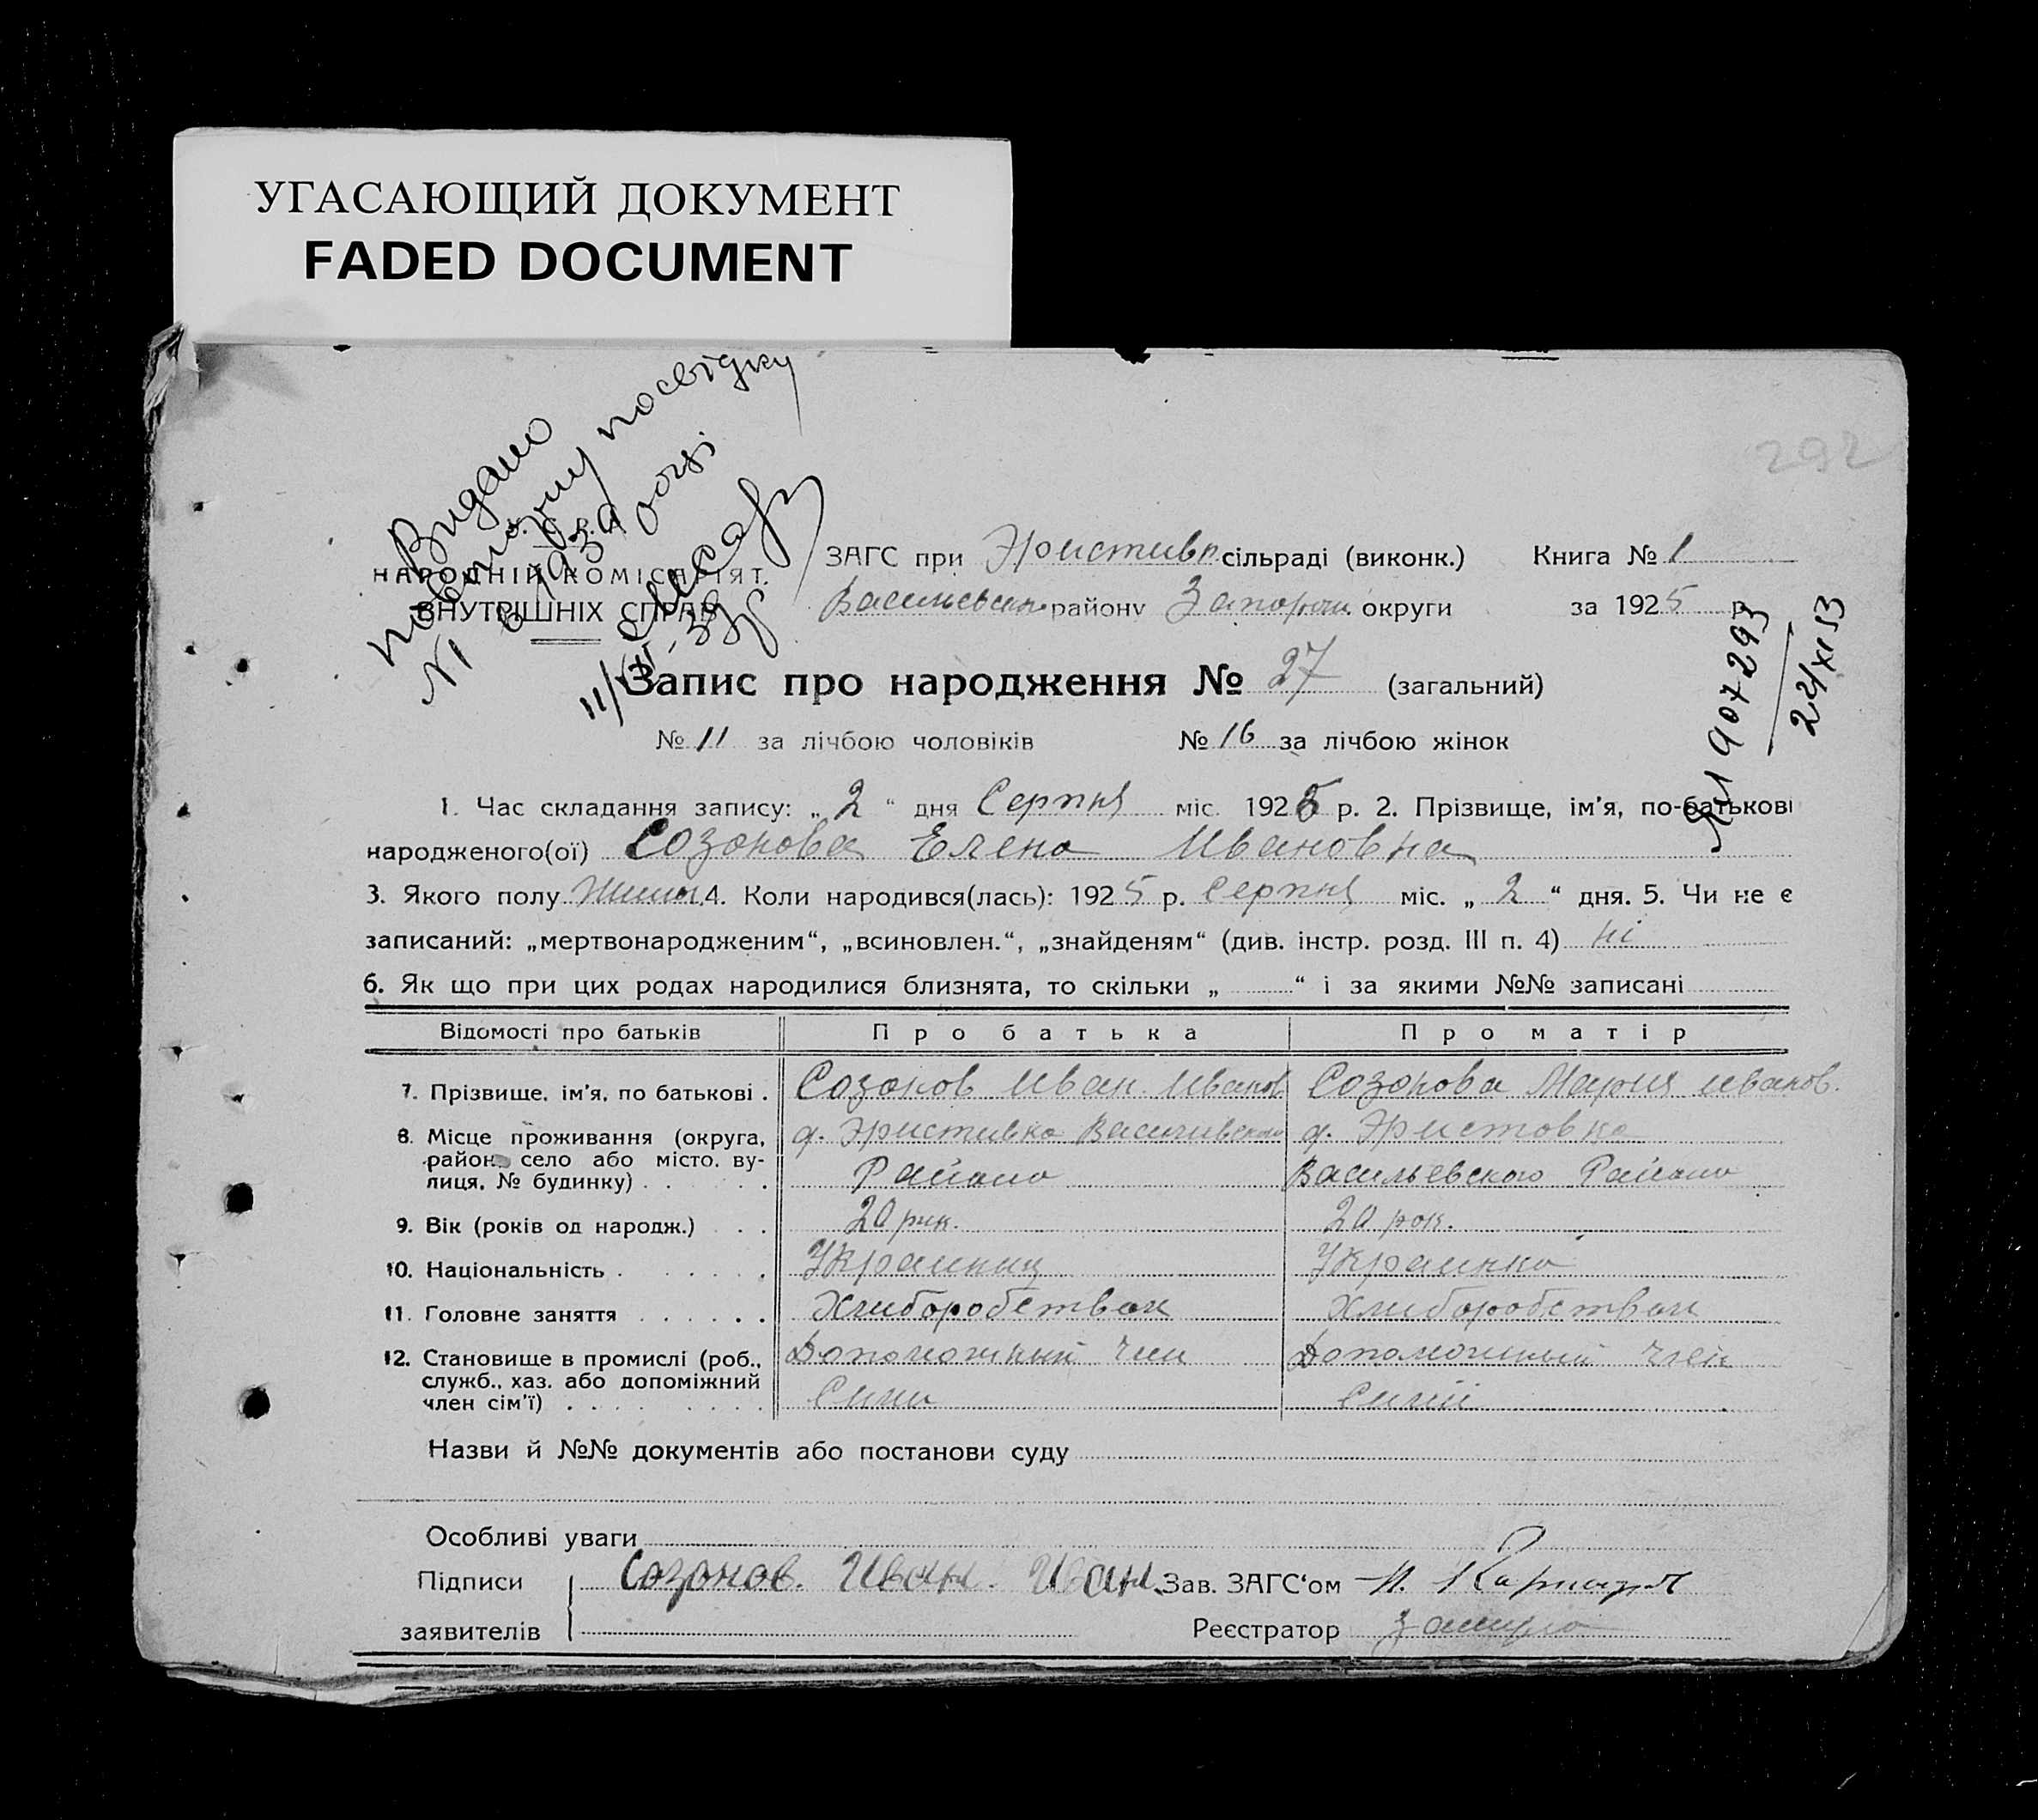 УГАСАЮЩИЙ ДОКУМЕНТ
FADED DOCUMENT
292
Видано
повторну посвідку
№
11/XII-38
НАРОДНІЙ КОМІСАРІЯТ
ВНУТРІШНІХ СПРАВ
ЗАГС при Эристивк. сільраді (виконк.) Книга № 1
Васильевск. району Запорож. округи за 1925 р.
Запис про народження № 27 (загальний)
№ 11 за лічбою чоловіків № 16 за лічбою жінок
907293
24/XI 53
1. Час складання запису: „2“ дня Серпня міс. 1925 р. 2. Прізвище, ім’я, по-батькові
народженого(ої) Созонова Елена Ивановна
3. Якого полу 4. Коли народився(лась): 1925 р. Серпня міс. „2“ дня. 5. Чи не є
записаний: „мертвонародженим“, „всиновлен.“, „знайденям“ (див. інстр. розд. III п. 4) ні
6. Як що при цих родах народилися близнята, то скільки „ “ і за якими №№ записані
Відомості про батьків Про батька Про матір
7. Прізвище, ім’я, по батькові . Созонов Иван Иванов Созонова Мария Иванов.
8. Місце проживання (округа, д. Эристивка д. Эристовка
район, село або місто, ву- Району Васильевского Району
лиця, № будинку) . . . . . .
9. Вік (років од народж.) . . 20 рик. 20 рок.
10. Національність . . . . . . Украинец Украинка
11. Головне заняття . . . . . . Хлиборобством Хлиборобством
12. Становище в промислі (роб., Допоможный член Допоможный член
служб., хаз. або допоміжний Сими Симії
член сім’ї) . . . . . . . . .
Назви й №№ документів або постанови суду
Особливі уваги
Підписи Созонов. Иван. Иван. Зав. ЗАГС‘ом
заявителів Реєстратор